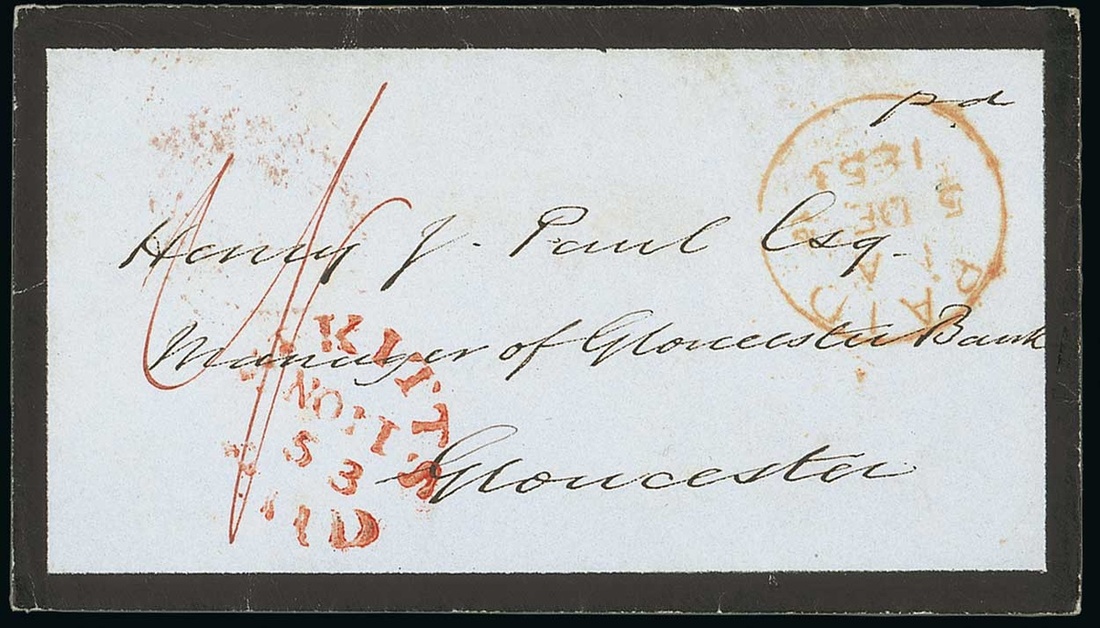 pd
PAID
5 DE 5
1853
Henry J. Paul Esq.
Manager of Gloucester Bank
Gloucester
KITTS
NO
53